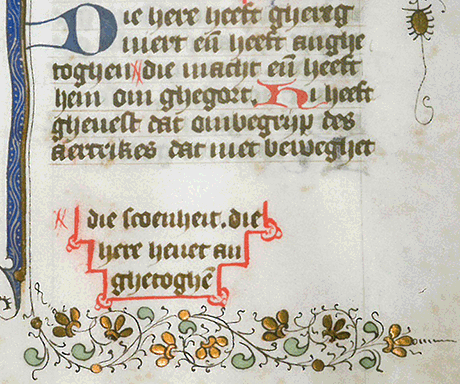 Die here heeft ghereg
niert eñ heeft anghe
toghen die macht eñ heeft
hem om ghegort. Hi heeft
gheuest dat ombegrijp des
aertrikes dat niet beweghet
die scoenheit. die
here heuet an
ghetoghē